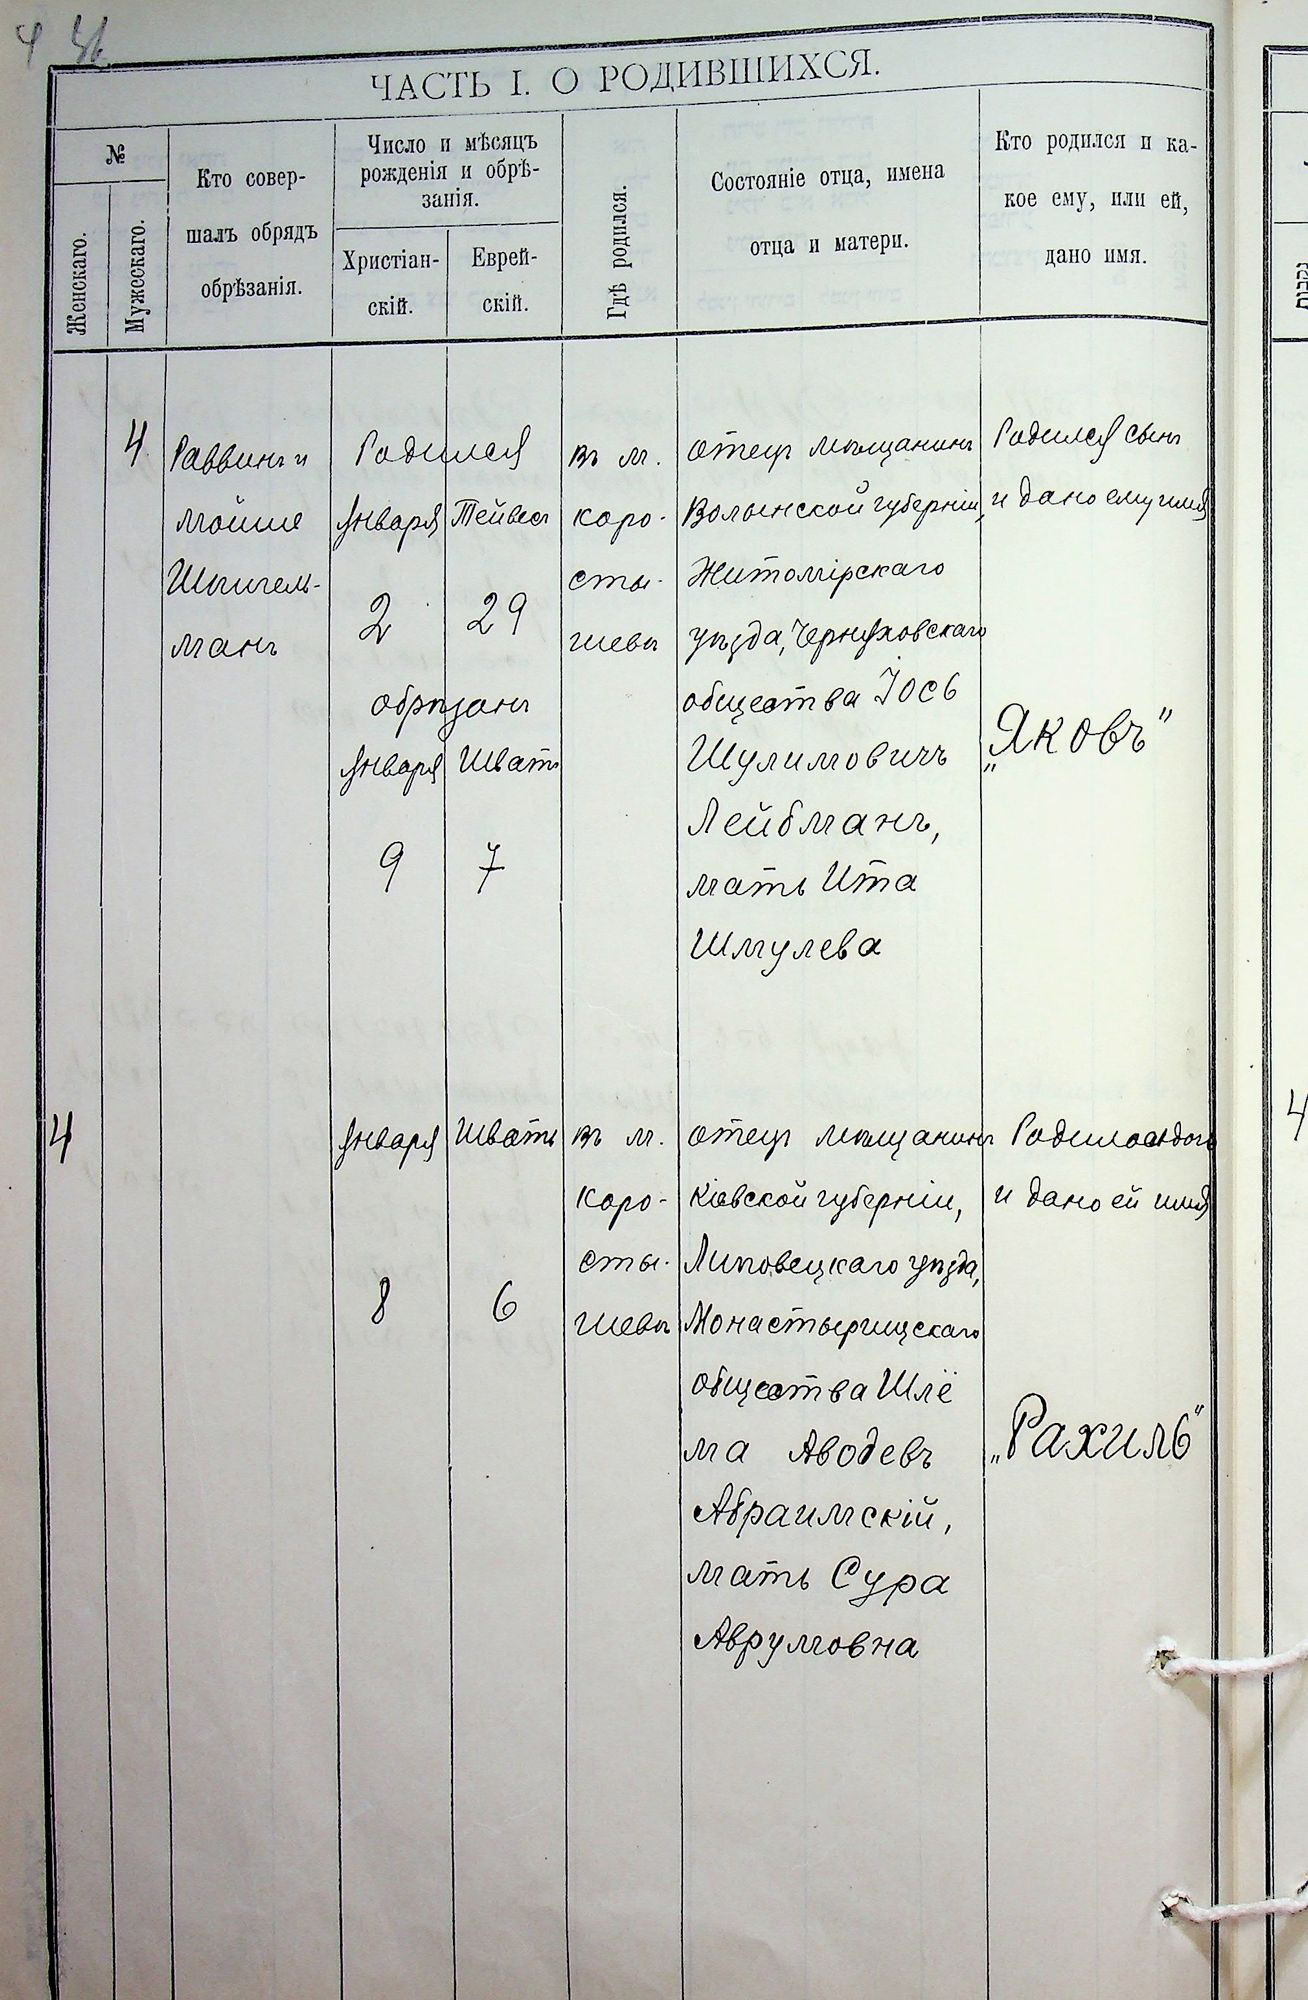 4
ЧАСТЬ I. О РОДИВШИХСЯ.
№
Женскаго.
Мужескаго.
Кто совер-
шалъ обрядъ
обрѣзанія.
Число и мѣсяцъ
рожденія и обрѣ-
занія.
Христіан-
скій.
Еврей-
скій.
Гдѣ родился.
Состояніе отца, имена
отца и матери.
Кто родился и ка-
кое ему, или ей,
дано имя.
4
Раввинъ и
Мойше
Шпигель-
манъ
Родился
Января
2
Тейвесъ
29
обрѣзанъ
Января
9
Шватъ
7
въ м.
Коро-
сты-
шевѣ
отецъ мѣщанинъ
Волынской губерніи,
Житомірскаго
уѣзда, Черняховскаго
общества Іось
Шулимовичъ
Лейбманъ,
мать Ита
Шмулева
Родился сынъ
и дано ему имя
„Яковъ"
4
Января
8
Шватъ
6
въ м.
Коро-
сты-
шевѣ
отецъ мѣщанинъ
Кіевской губерніи,
Липовецкаго уѣзда,
Монастырищскаго
общества Шлё
ма Аводевъ
Абраимскій,
мать Сура
Аврумовна
Родилась дочь
и дано ей имя
„Рахиль"
4